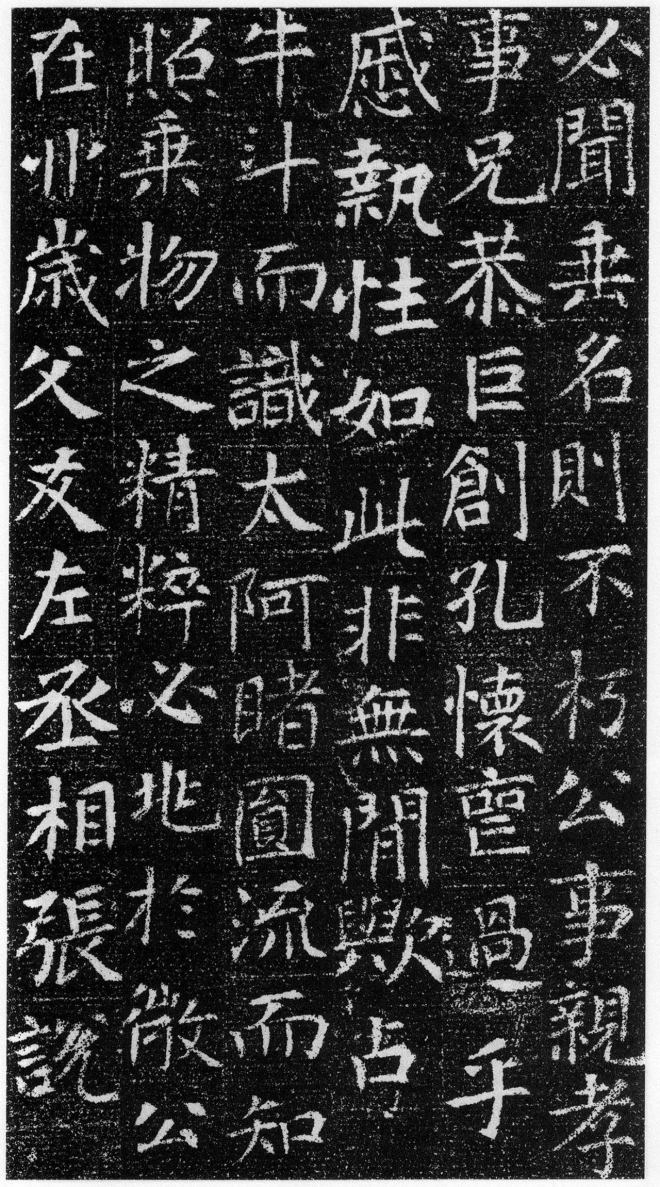 必聞垂名則不朽公事親孝
事兄恭巨創孔懷亶過乎
慼執性如此非無閒歟占
牛斗而識太阿睹圓流而知
照乘物之精粹必兆於微公
在丱歲父友左丞相張説